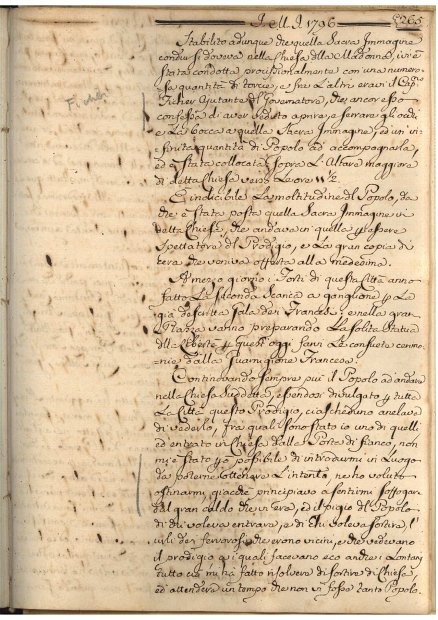 1796
265
Stabilito adunque che quella Sacra Immagine
condur si doveva nella Chiesa della Madonna, ivi è
stata condotta processionalmente con una numero-
sa quantità di torce, e fra l'altri eravi il Cap:no
Ficher Ajutante del Governatore, che ancor esso
confessa di aver veduto aprire, e serrare gli occhi,
e la bocca a quella Sacra Immagine, ed un' in-
finita quantità di Popolo ad accompagnarla,
ed è stata collocata sopra l'Altare maggiore
di detta Chiesa verso le ore 11 1/2
È indicibile la moltitudine del Popolo, da
che è stata posta quella Sacra Immagine in
detta Chiesa, che andava in quella p essere
spettatore del Prodigio, e la gran copia di
cera che veniva offerta alla medesima.
A mezzo giorno i Forti di questa Città anno
fatto la seconda Scarica a p la
già descritta Festa dei Francesi: e nella gran
Piazza vanno preparando la solita Statua
della Libertà p quest'oggi farvi le consuete cerimo-
nie dalla Guarnigione Francese
Continovando sempre più il Popolo ad andare
nella Chiesa suddetta, essendosi divulgato p tutta
la Città questo Prodigio, ciascheduno anelava
di vederlo, fra quali sono stato io uno di quelli
ed entrato in Chiesa dalla Porta di fianco, non
mi è stato p possibile di introdurmi in Luogo
da poterne ottenere l'intento, ne ho voluto
ostinarmi, giacchè principiavo a sentirmi soffogar
dal gran caldo che ivi era, ed il pigio del Popolo
di chi voleva entrare, e di chi voleva sortire, l'
urli dei fervorosi che erono vicini, e che vedevano
il prodigio, ai quali facevano eco anche i Lontani
tutto ciò mi ha fatto risolvere di sortire di Chiesa,
ed attendere un tempo che non vi fosse tanto Popolo.
Ficher